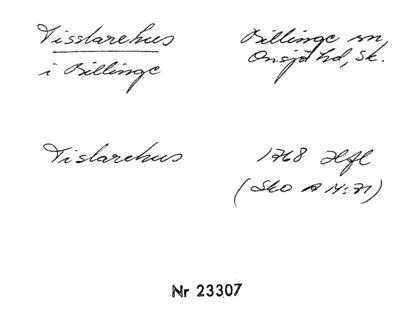 Tisslarehus
i Billinge
Billinge sn
Onsjö hd, Sk.
Tislarehus
1768 Hfl
(Sko A IV:71)
Nr 23307